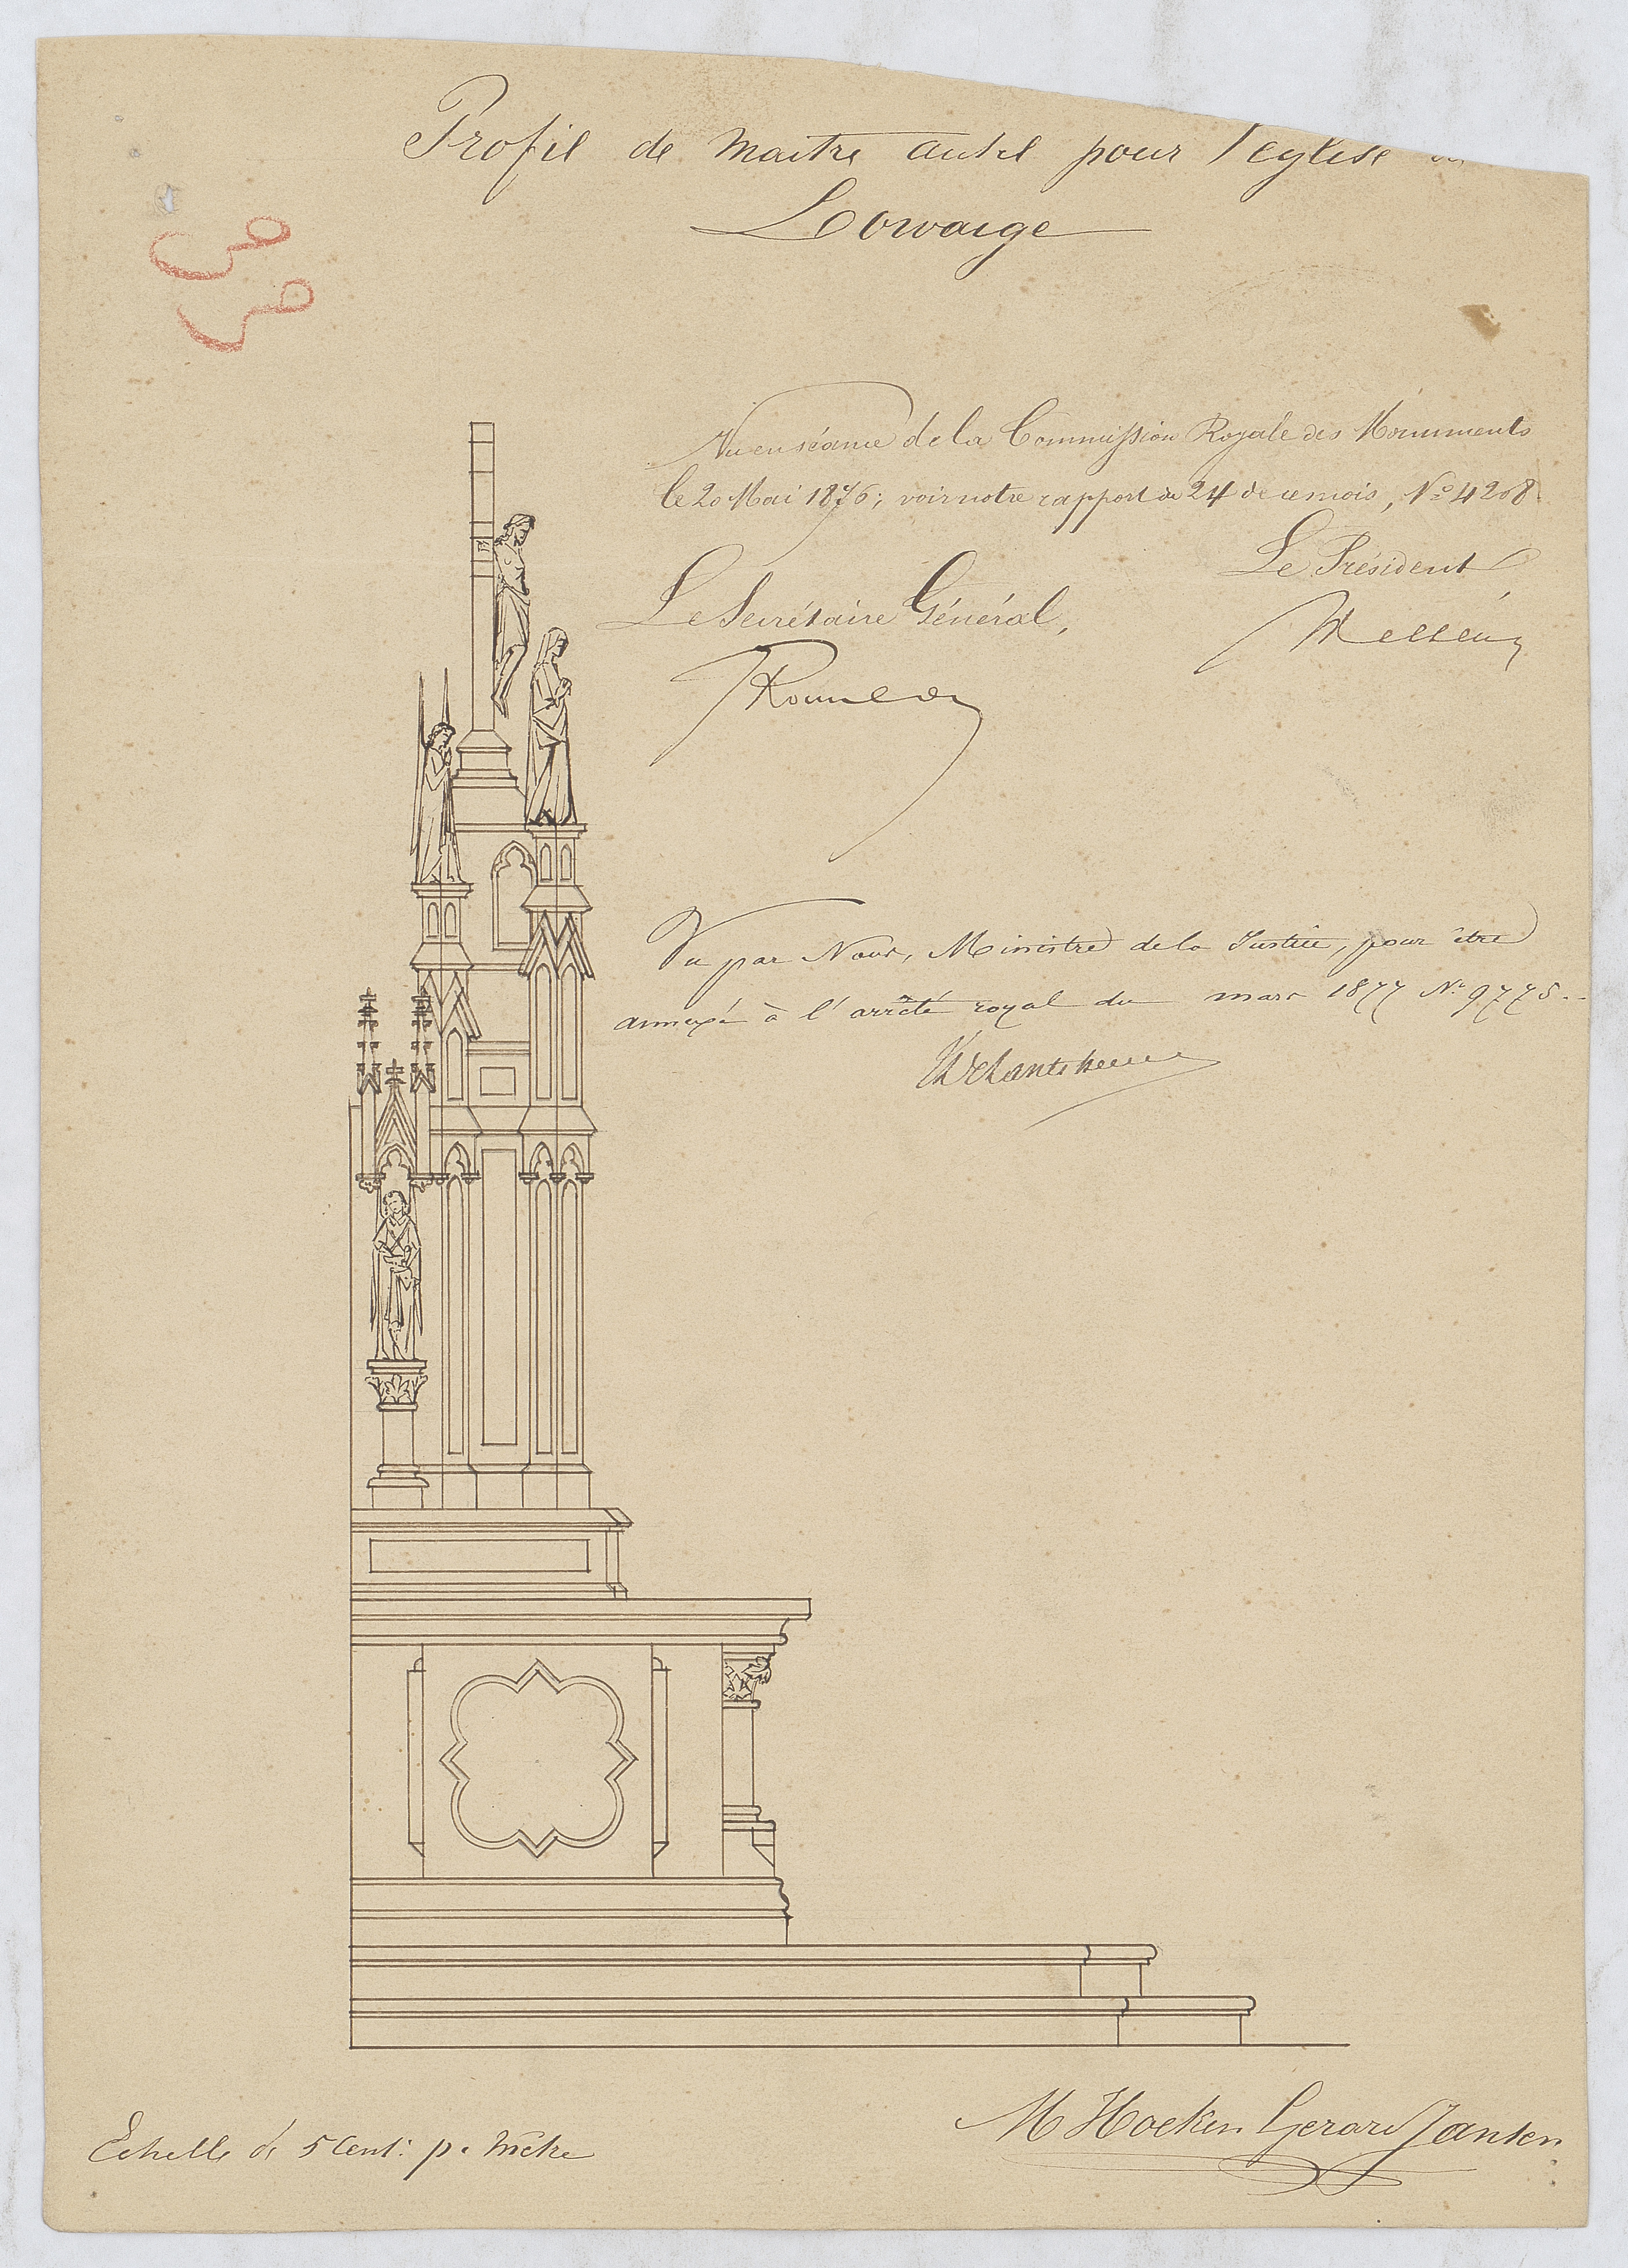 Profil de Maitre autel pour l'eglise
Lowaige
Vu en séance de la Commission Royale des Monuments
le 20 Mai 1876; voir notre rapport du 24 de ce mois, No 4208
Le Président
Le Secrétaire Général,
Wellens
Rousseau
Vu par Nous, Ministre de la Justice, pour être
annexé à l'arrêté royal du mars 1877 No 9775.
Echelle de 5 Cent: p. mètre
M Hoeken Gerard Jansen